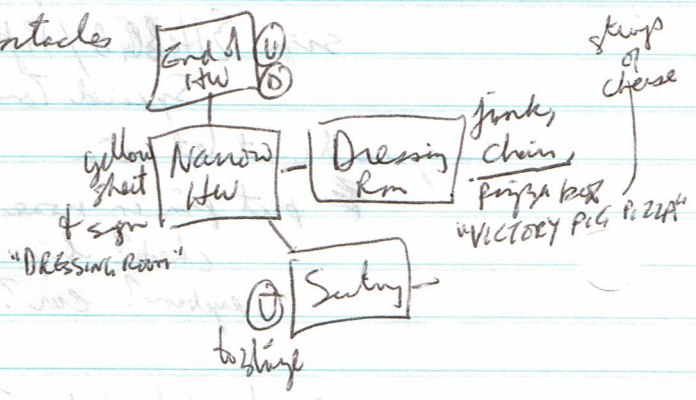 End of
HW
U
D
strings
of
cheese
yellow
sheet
+ sign
"DRESSING ROOM"
Narrow
HW
Dressing
Rm
junk,
chair,
pizza box
"VICTORY PIG PIZZA"
U
to stage